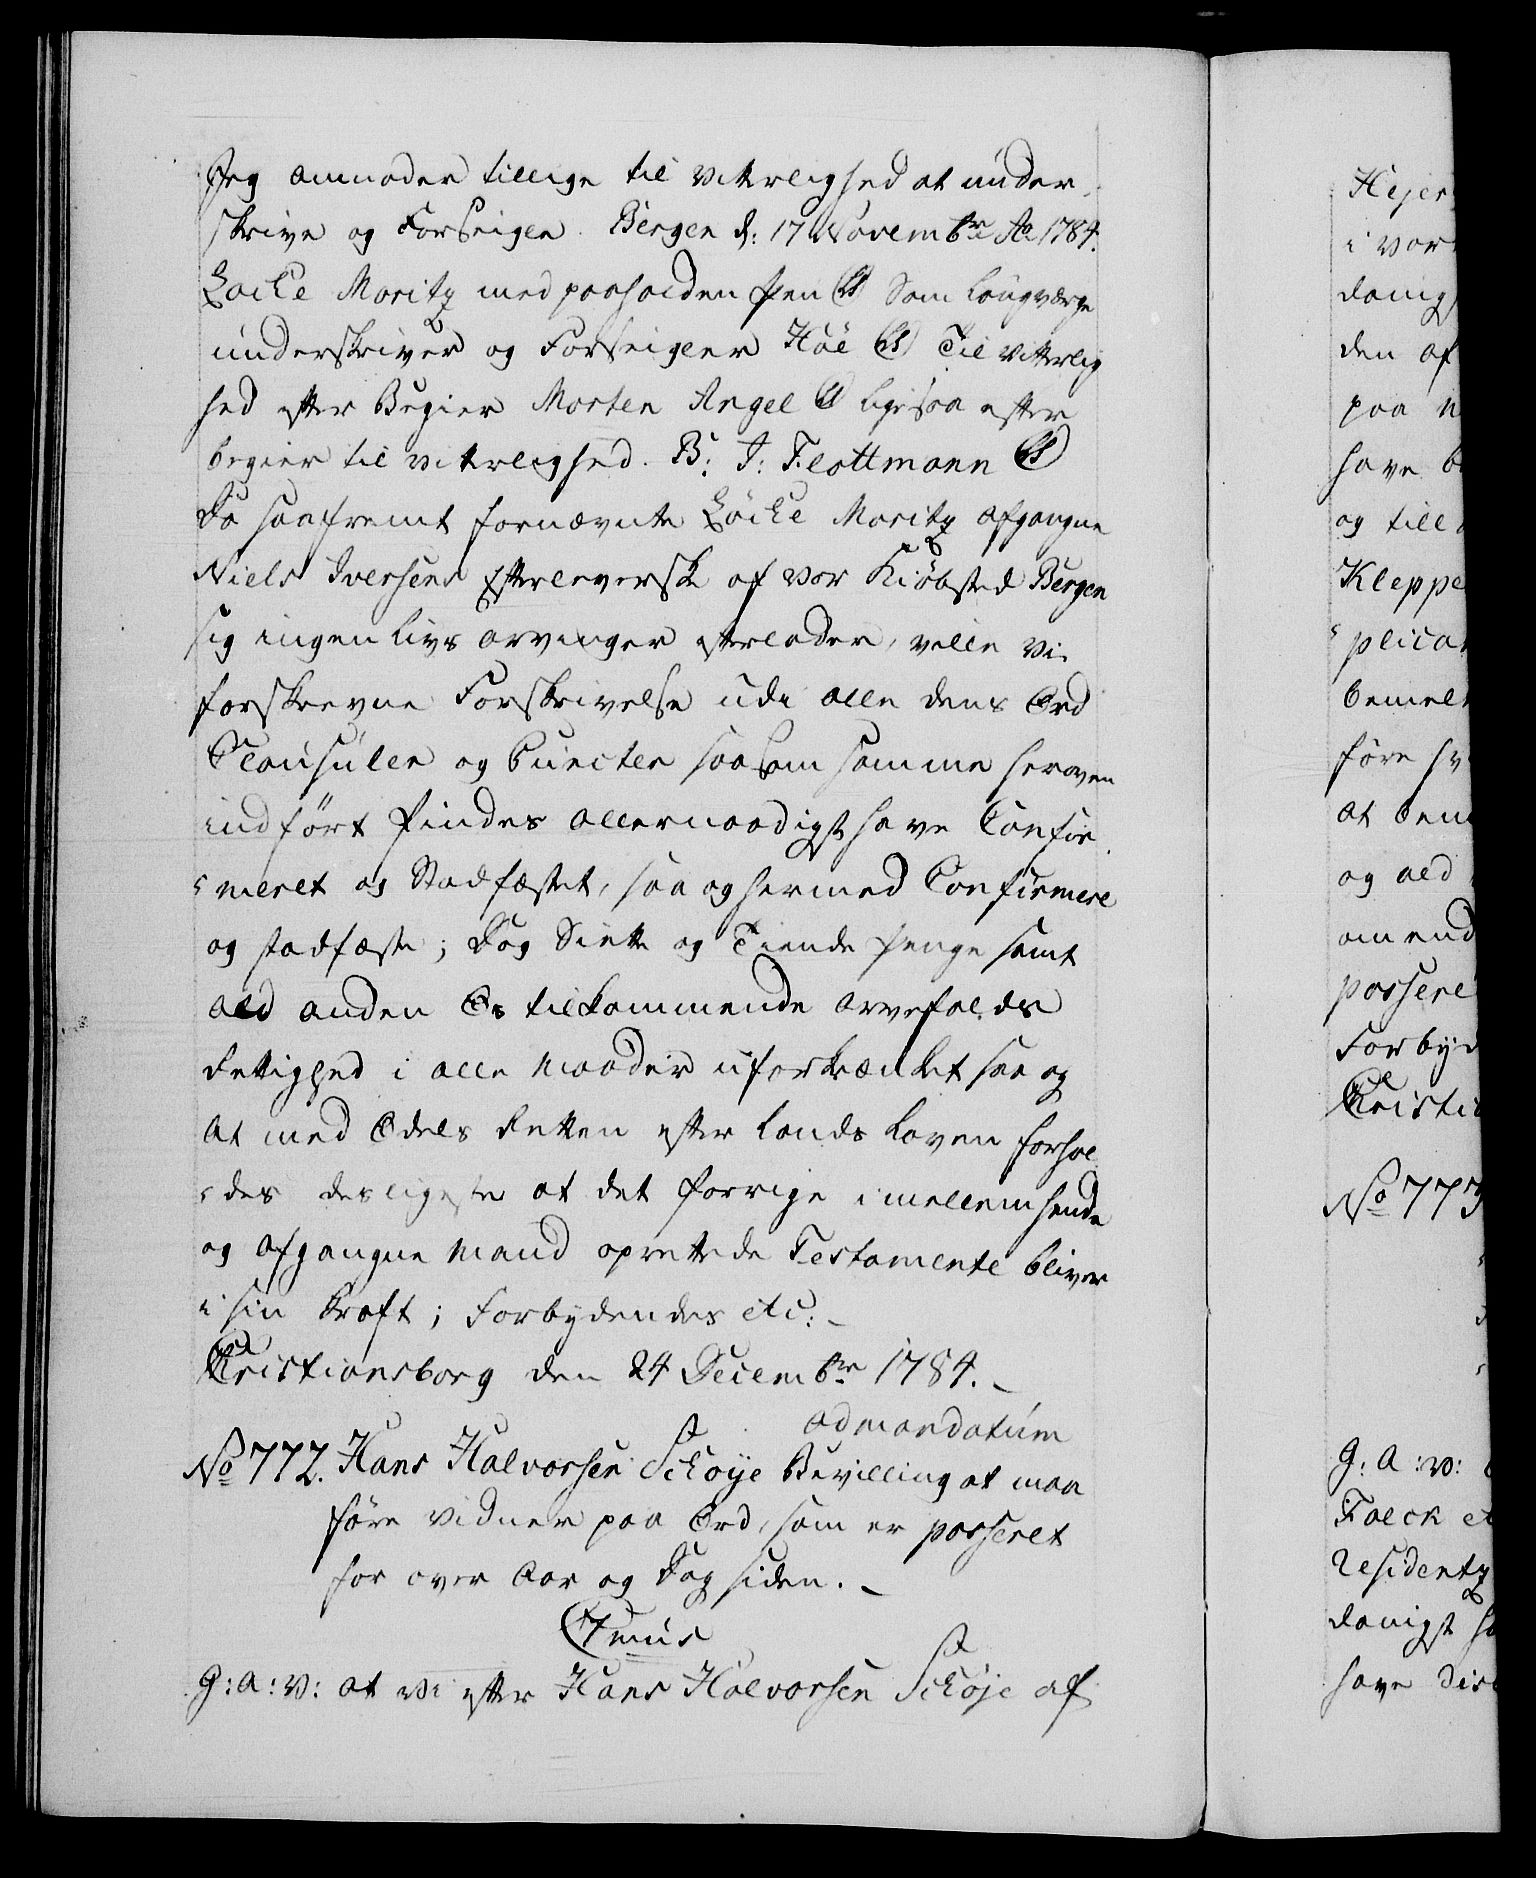 Jeg anmoder tillige til Vitterlighed at under-
skrive og Forseigle. Bergen d: 17 Novembr Ao 1784.
Løcke Moritz med paaholden Pen (LS) Som Laugværge
underskriver og Forseigler Høe (LS) Til Vitterlig
hed efter Begier Morten Angel (LS) ligesaa efter
begier til Vitterlighed. B: J: Flottmann (LS)
Da saafremt fornævnte Løcke Moritz afgangne
Niels Iversens Efterleverske af vor Kiøbsted Bergen
sig ingen Livs Arvinger efterlader, ville Vi
forskrevne Forskrivelse udi alle dens Ord
Clausuler og Puncter saasom samme heroven
indført findes allernaadigst have Confir-
meret og Stadfæstet, saa og hermed Confirmere
og stadfæste; Dog Siette og Tiende Penge samt
ald anden Os tilkommende Arvefalds
Rettighed i alle Maader uforkrænket saa og
at med Odels Retten efter Lands Loven forhol
des desligeste at det forrige imellem hende
og afgangne Mand oprettede Testamente bliver
i sin Kraft; Forbydendes etc: -
Christiansborg den 24 Decembr 1784. -
ad mandatum
No 772. Hans Halvorsen Schøye Bevilling at maa
føre Vidner paa Ord, som er passeret
for over Aar og Dag siden. -
G: A: V: at Vi efter Hans Halvorsen Schøje af
Hejer
i vor
danigs
den af
paa
have
og till
Kleppe
plican
bemel
føre
at bem
og ald
omend
passere
Forbyd
Christia
No 773
G: A: V:
Falck et
Residentz
danigst
have dis